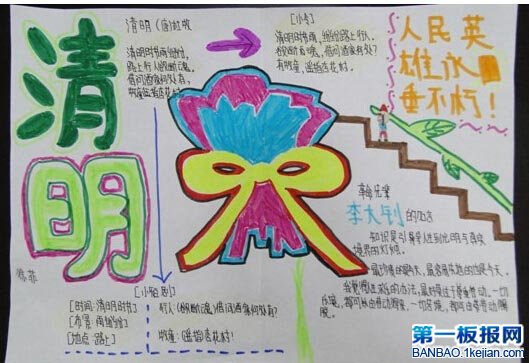 清明
清明 (唐)杜牧
清明时节雨纷纷,
路上行人欲断魂。
借问酒家何处有,
牧童遥指杏花村。
[小令]
清明时节雨,纷纷路上行人,
欲断魂。借问酒家何处?
有牧童,遥指杏花村。
人民英
雄永
垂不朽!
李大钊的名言
知识是引导人生到光明与真实
境界的灯烛。
[小短剧]
[时间:清明时节]
[布景:雨纷纷]
[地点:路上]
行人:(欲断魂)借问酒家何处有?
牧童:遥指杏花村!
第一板报网
BANBAO.1kejian.com